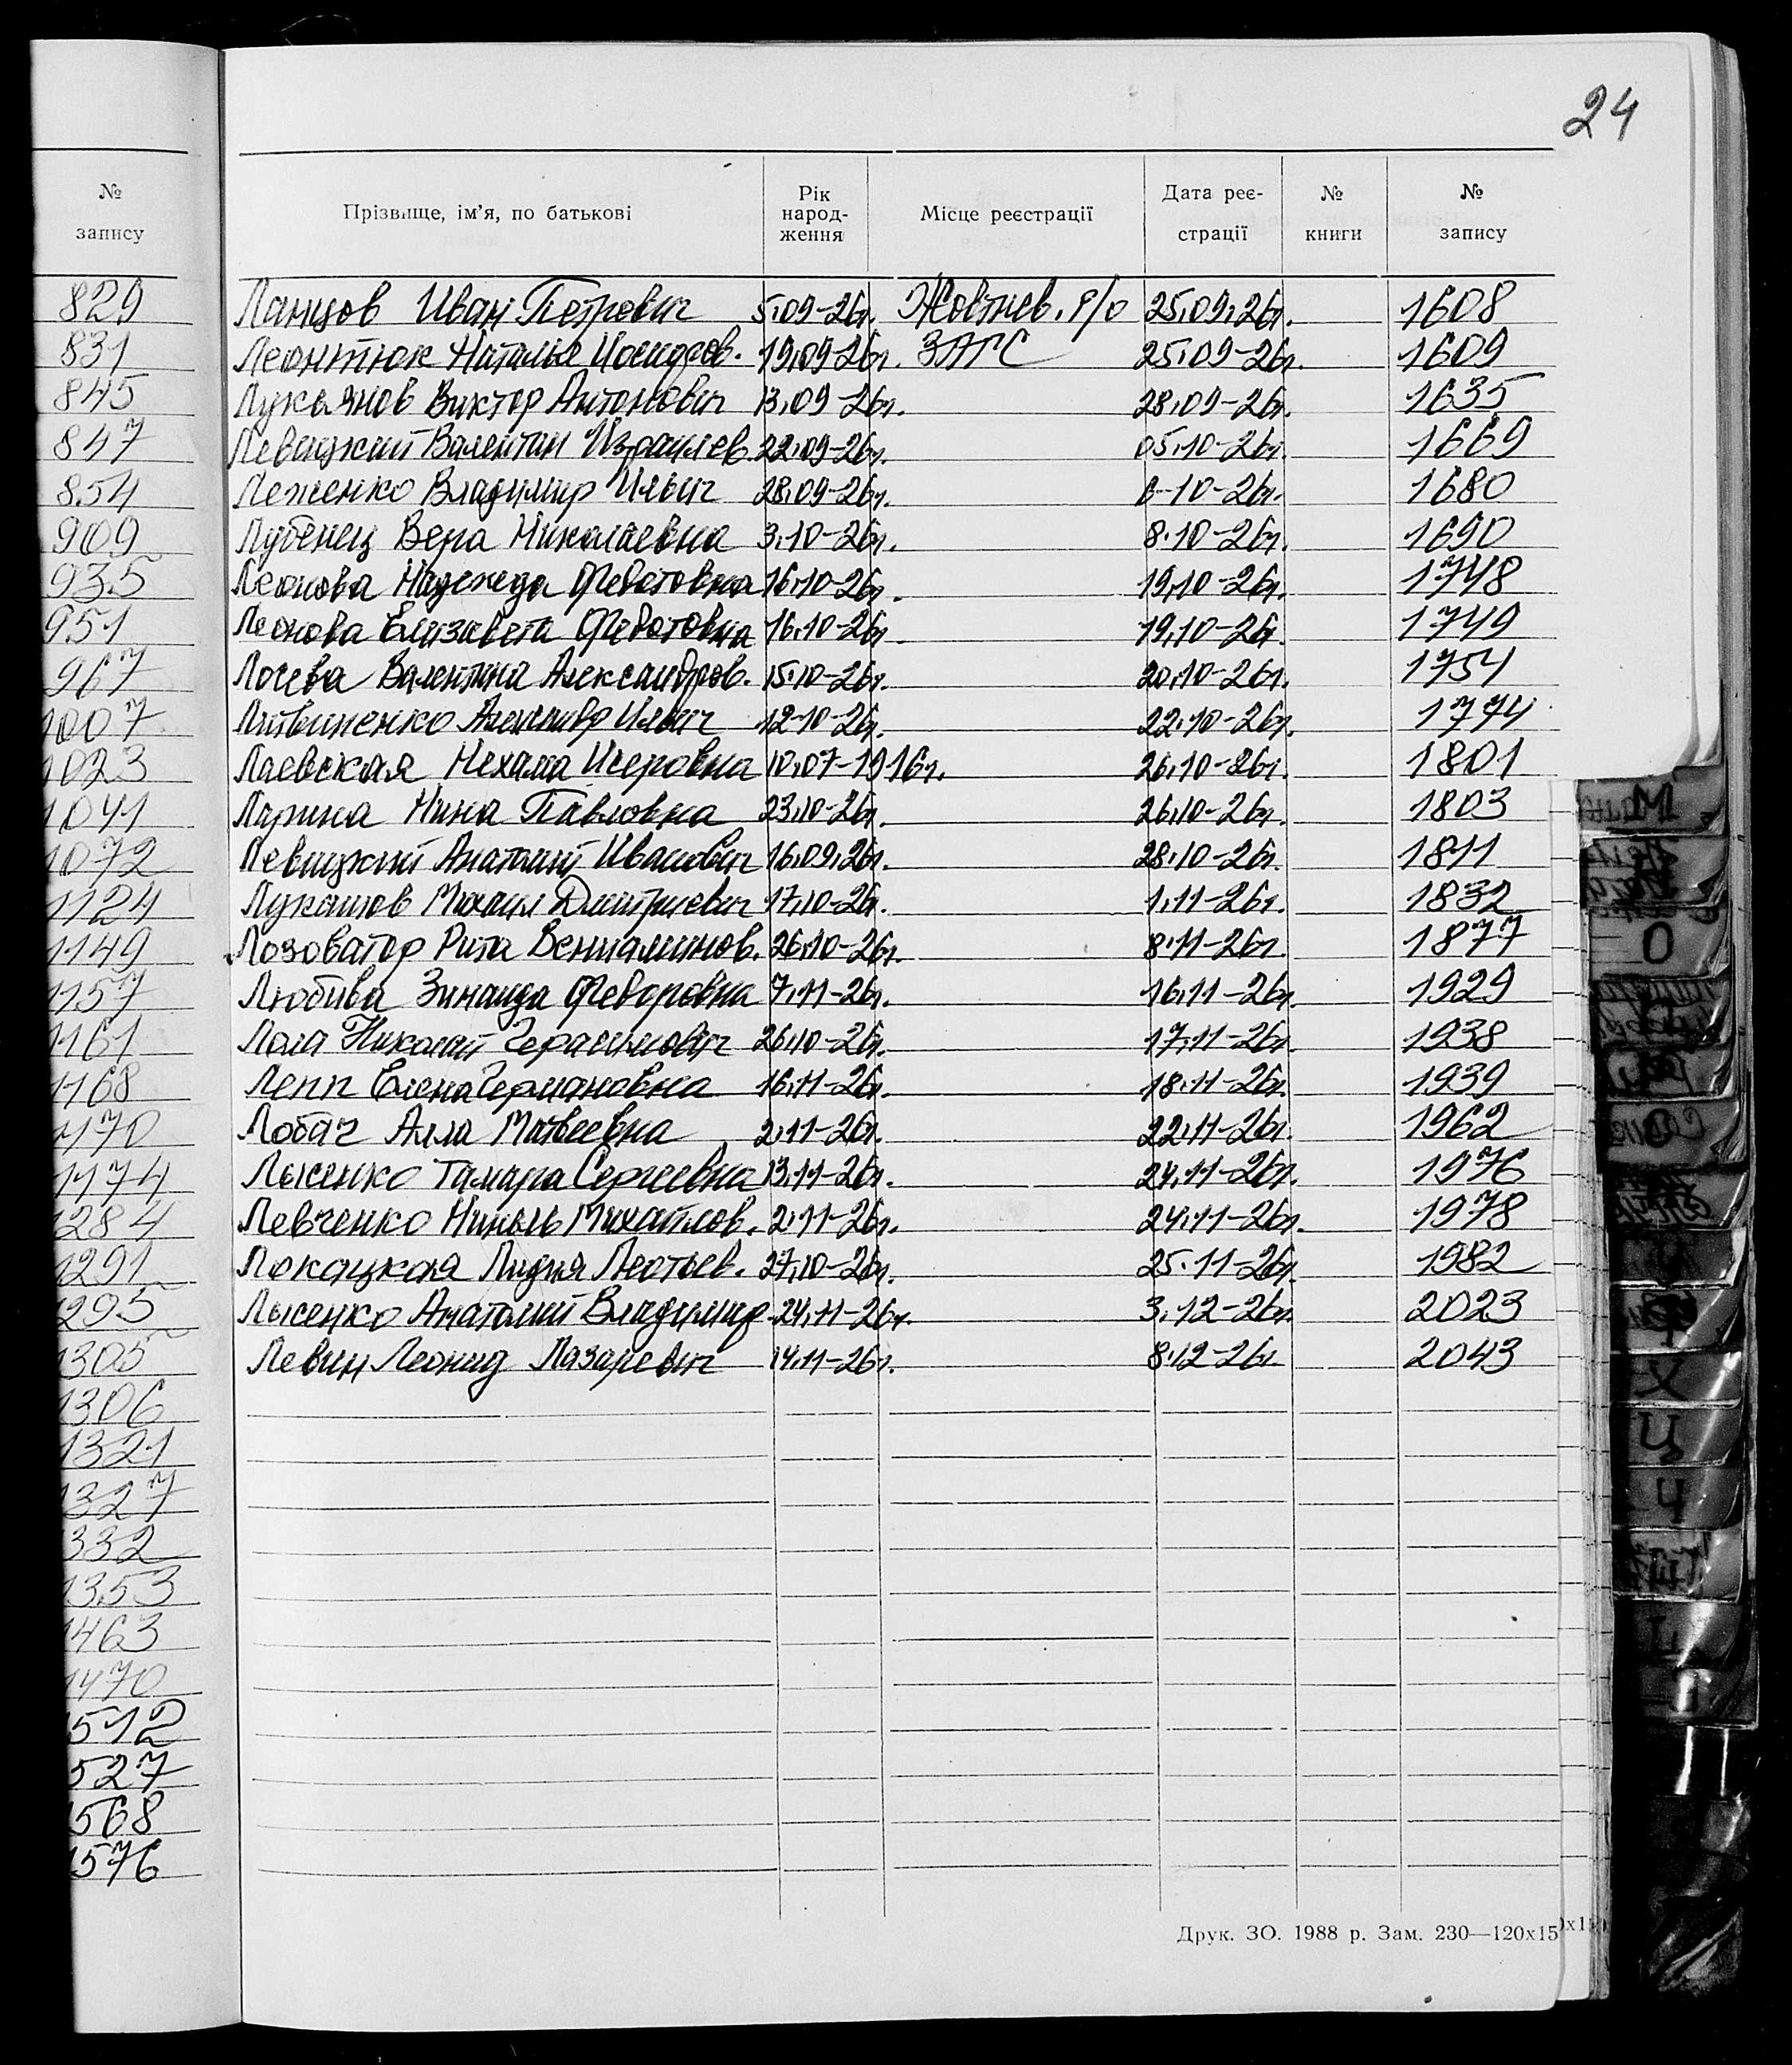 24
№ запису
Прізвище, ім'я, по батькові Рік народження Місце реєстрації Дата реєстрації № книги № запису
829
831
845
847
854
909
935
951
967
1007
1023
1041
1072
1124
1149
1157
1161
1168
1170
1174
1284
1291
1295
1305
1306
1321
1327
1332
1353
1463
1470
1512
1527
1568
1576
Ланцов Иван Петрович 5.09-26г. Жовтнев. р/о 25.09.26г. 1608
Леонтюк Наталья 19.09-26г. ЗАГС 25.09-26г. 1609
Лукьянов Виктор Антонович 13.09-26г. 28.09-26г. 1635
Левицкий Валентин Израилев. 22.09-26г. 05.10-26г. 1669
Леженко Владимир Ильич 28.09-26г. 6-10-26г. 1680
Лубенец Вера Николаевна 3.10-26г. 8.10-26г. 1690
Леонова Надежда Федотовна 16.10-26г. 19.10-26г. 1748
Леонова Елизавета Федотовна 16.10-26г. 19.10-26г. 1749
Лочева Валентина Александров. 15.10-26г. 20.10-26г. 1754
Литвиненко Александр Ильич 12-10-26г. 22.10-26г. 1774
Лаевская Нехама Исеровна 10.07-1916г. 26.10-26г. 1801
Ларина Нина Павловна 23.10-26г. 26.10-26г. 1803
Левицкий Анатолий Иванович 16.09.26г. 28.10-26г. 1811
Лукашов Михаил Дмитриевич 17.10-26г. 1.11-26г. 1832
Лозоватор Рита Вениаминов. 26.10-26г. 8.11-26г. 1877
Любива Зинаида Федоровна 7.11-26г. 16.11-26г. 1929
Лола Николай Герасимович 26.10-26г. 17.11-26г. 1938
Лепп Елена Германовна 16.11-26г. 18.11-26г. 1939
Лобач Алла Матвеевна 2.11-26г. 22.11-26г. 1962
Лысенко Тамара Сергеевна 13.11-26г. 24.11-26г. 1976
Левченко Нинель Михайлов. 2.11-26г. 24.11-26г. 1978
Локацкая Лидия Леотьев. 27.10-26г. 25.11-26г. 1982
Лысенко Анатолий Владимир. 24.11-26г. 3.12-26г. 2023
Левин Леонид Лазаревич 14.11-26г. 8.12-26г. 2043
Друк. ЗО. 1988 р. Зам. 230—120х15
М
О
Х
Ц
Ч